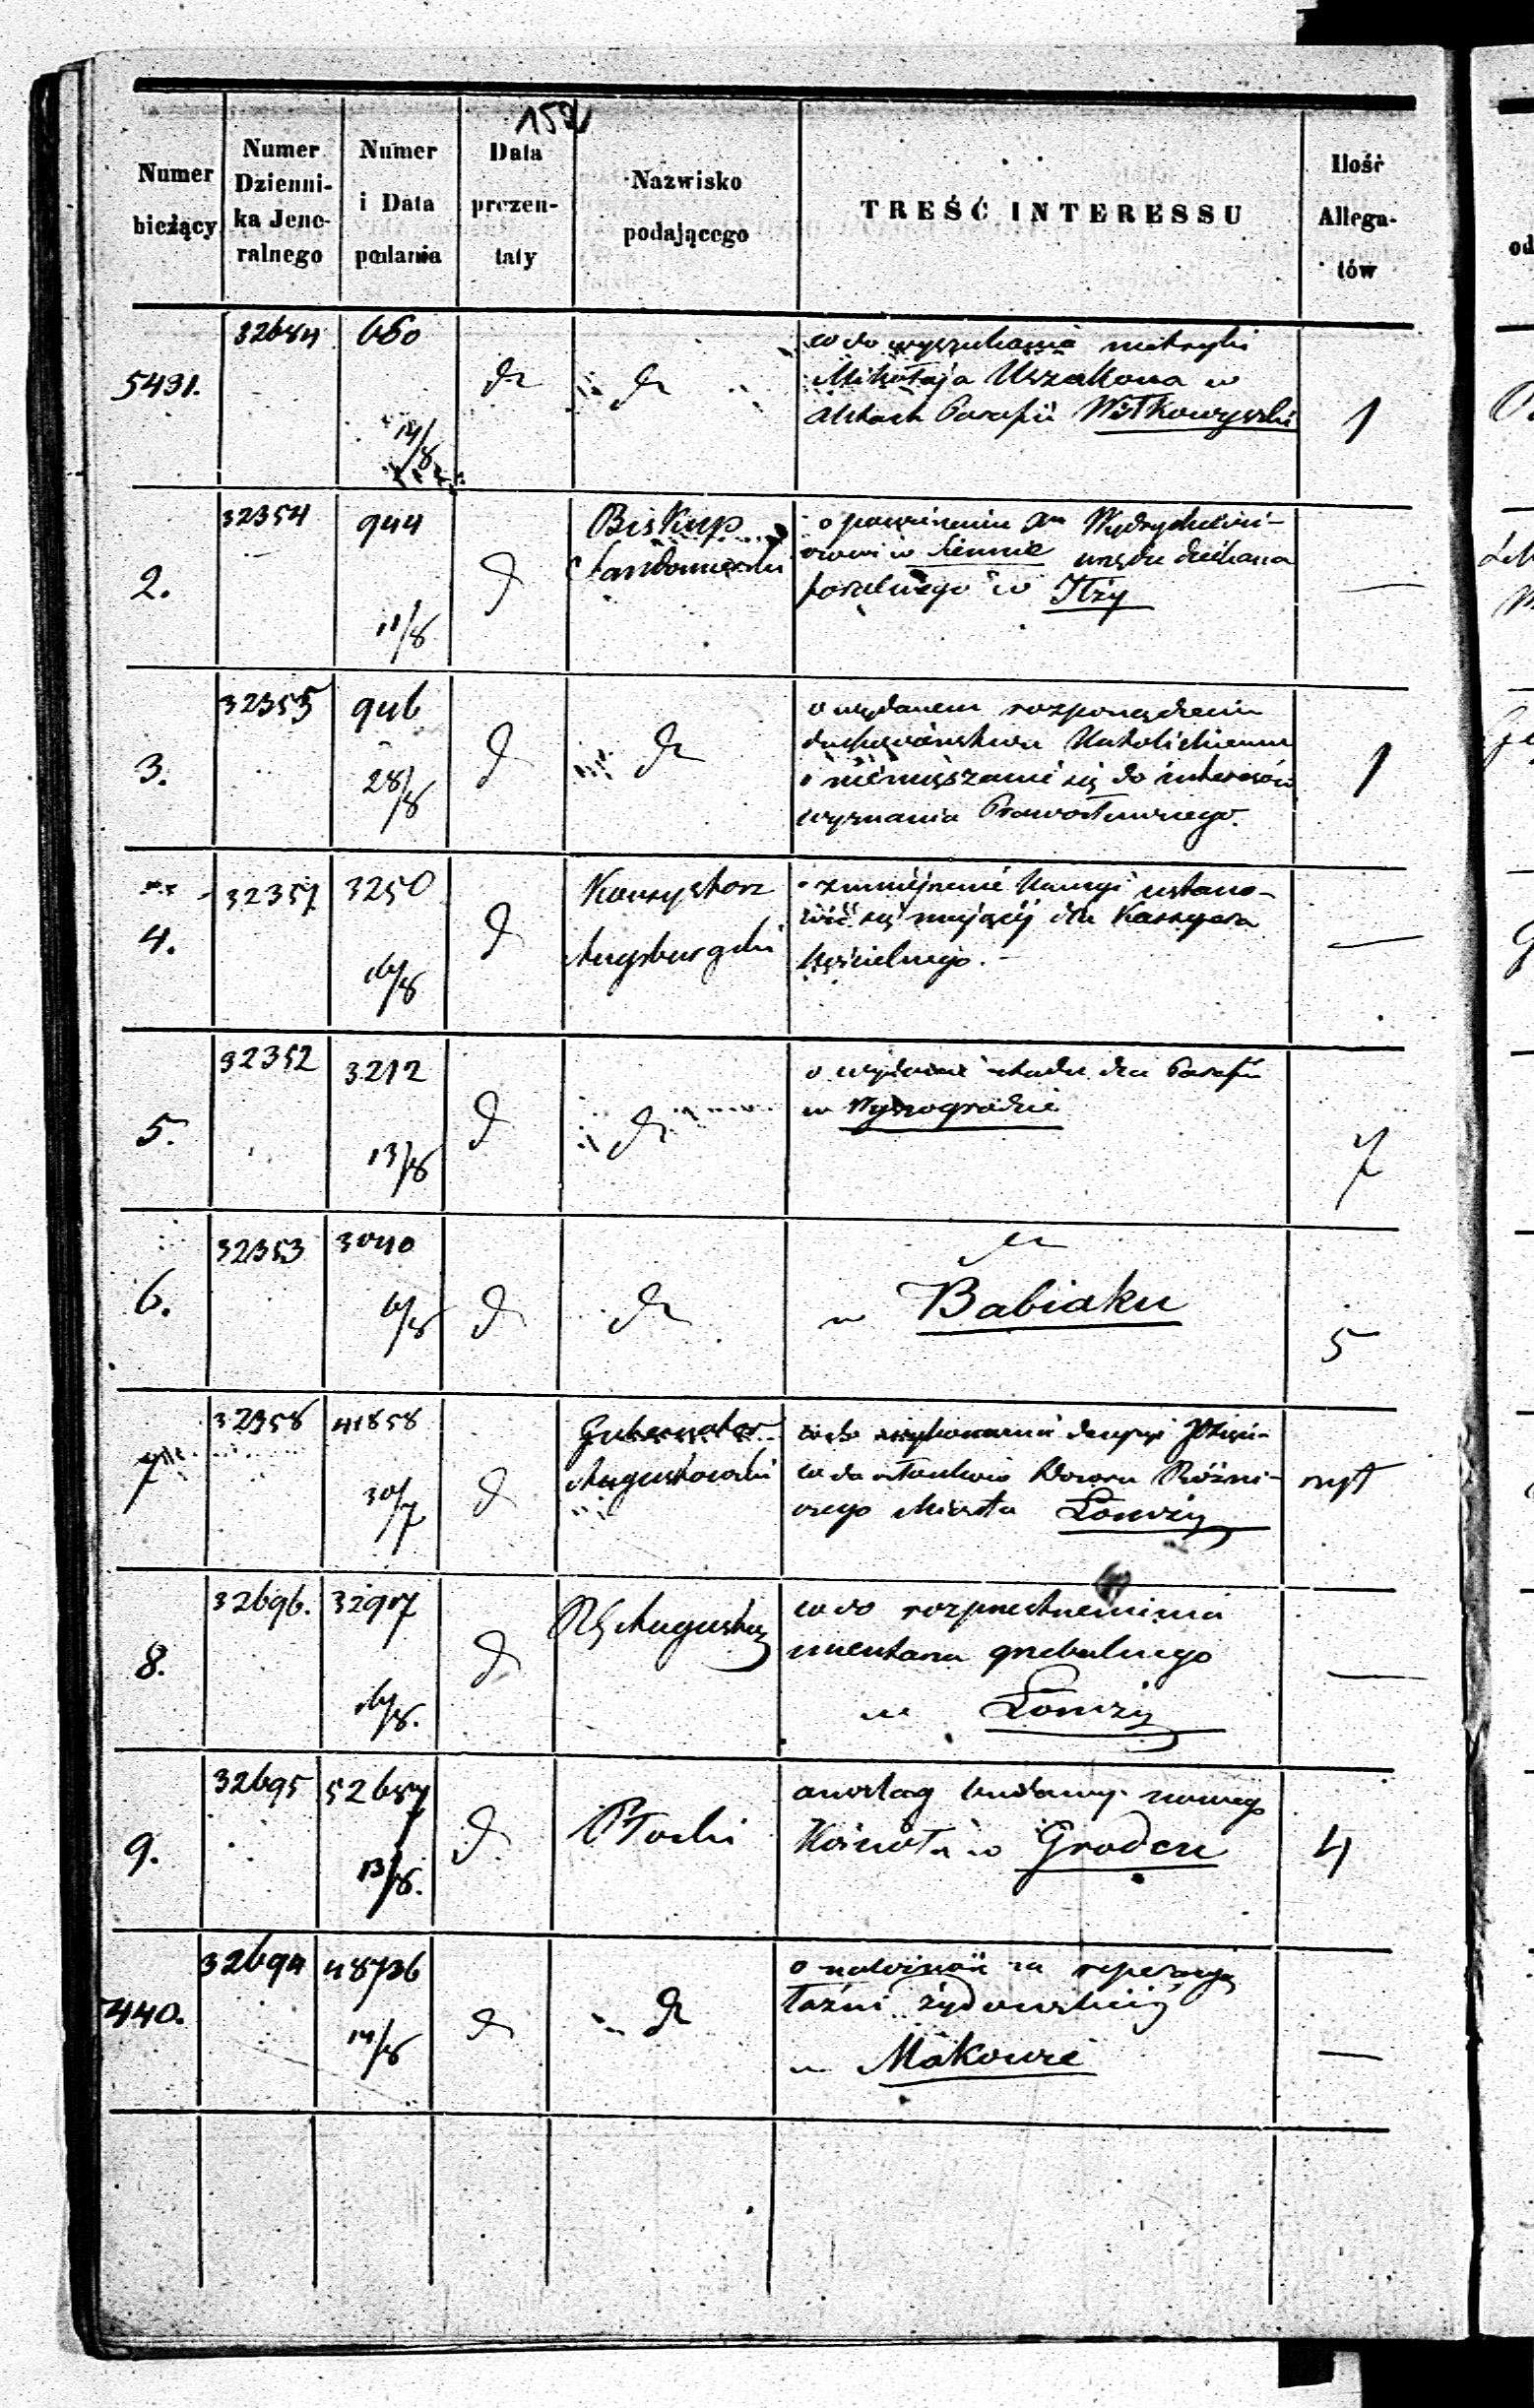 152
Numer bieżący
Numer Dzienni- ka Jene- ralnego
Numer i Data podania
Data prezen- taty
Nazwisko podającego
TREŚĆ INTERESSU
Ilość Allega- tów
5431.
32684
660
14/8
dr
dr
co do wyszukania metryki
Mikołaja Uszakowa w
aktach Parafii Wiłkowyszki
1
2.
32354
944
11/8
d
Biskup
Sandomierski
o powierzeniu Xu
w Siennie urzędu dziekana
foralnego w Iłży
—
3.
32355
946
28/8
d
dr
o wydanem rozporządzeniu
duchowieństwu Katolickiemu
o niemięszanie się do interesów
wyznania Prawosławnego.
1
4.
32357
3250
16/8
d
Konsystorz
Augsburgski
o zmniejszenie Kaucyi ustano-
wić się mającej dla Kassyera
Kościelnego.
—
5.
32352
3212
13/8
d
dr
o etatu dla Parafii
w Wyszogrodzie
7
6.
32353
3040
6/8
d
dr
dr
w Babiaku
5
7
32358
41858
30/7
d
Gubernator
Augustowski
co do wykonania decyzyi
co do Dozoru Bóżni-
czego Miasta Łomży
8.
32696.
32917
16/8.
d
RG Augustow
co do rozprzestrzenienia
cmentarza grzebalnego
w Łomży
—
9.
32695
52657
13/8.
d
Płocki
anszlag budowy nowego
Kościoła w Grodcu
4
5440.
32694
48736
14/8
d
dr
o reperacyą
łaźni żydowskiej
w Makowie
—